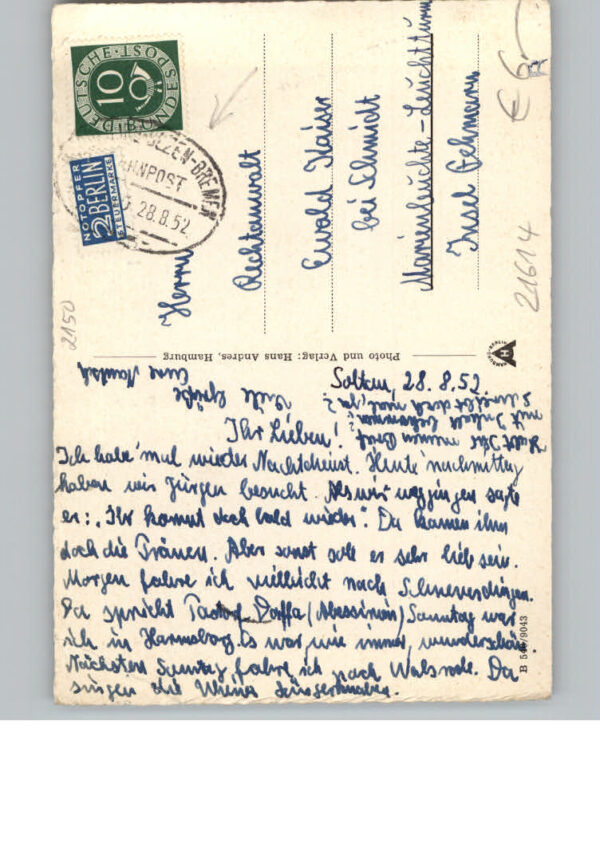 Soltau, 28. 8. 52.
Ihr Lieben!
Ich habe mal wieder Nachtdienst. Heute nachmittag
haben wir Jürgen besucht. Als wir weggingen sagte
er: „Ihr kommt doch bald wieder". Da kamen ihm
doch die Tränen. Aber sonst soll er sehr lieb sein.
Morgen fahre ich vielleicht nach Schneverdingen.
Da spricht Pastor Daffa (Abessinien) Sonntag war
ich in Hermannsburg. Es war, wie immer, wunderschön.
Nächsten Sonntag fahre ich nach Walsrode. Da
singen die Wiener Sängerknaben.
Habt Ihr meinen Brief
mit Inhalt bekommen?
Schreibt doch mal, ja?
Viele Grüße
Eure
Herrn
Rechtsanwalt
Ewald Kaiser
bei Schmidt
Marienleuchte-Leuchtturm
Insel Fehmarn
DEUTSCHE BUNDESPOST
10
NOTOPFER
2 BERLIN
STEUERMARKE
UELZEN-BREMEN
BAHNPOST
28.8.52
Photo und Verlag: Hans Andres, Hamburg
H
B 540/9043
2150
21614
€ 6,-